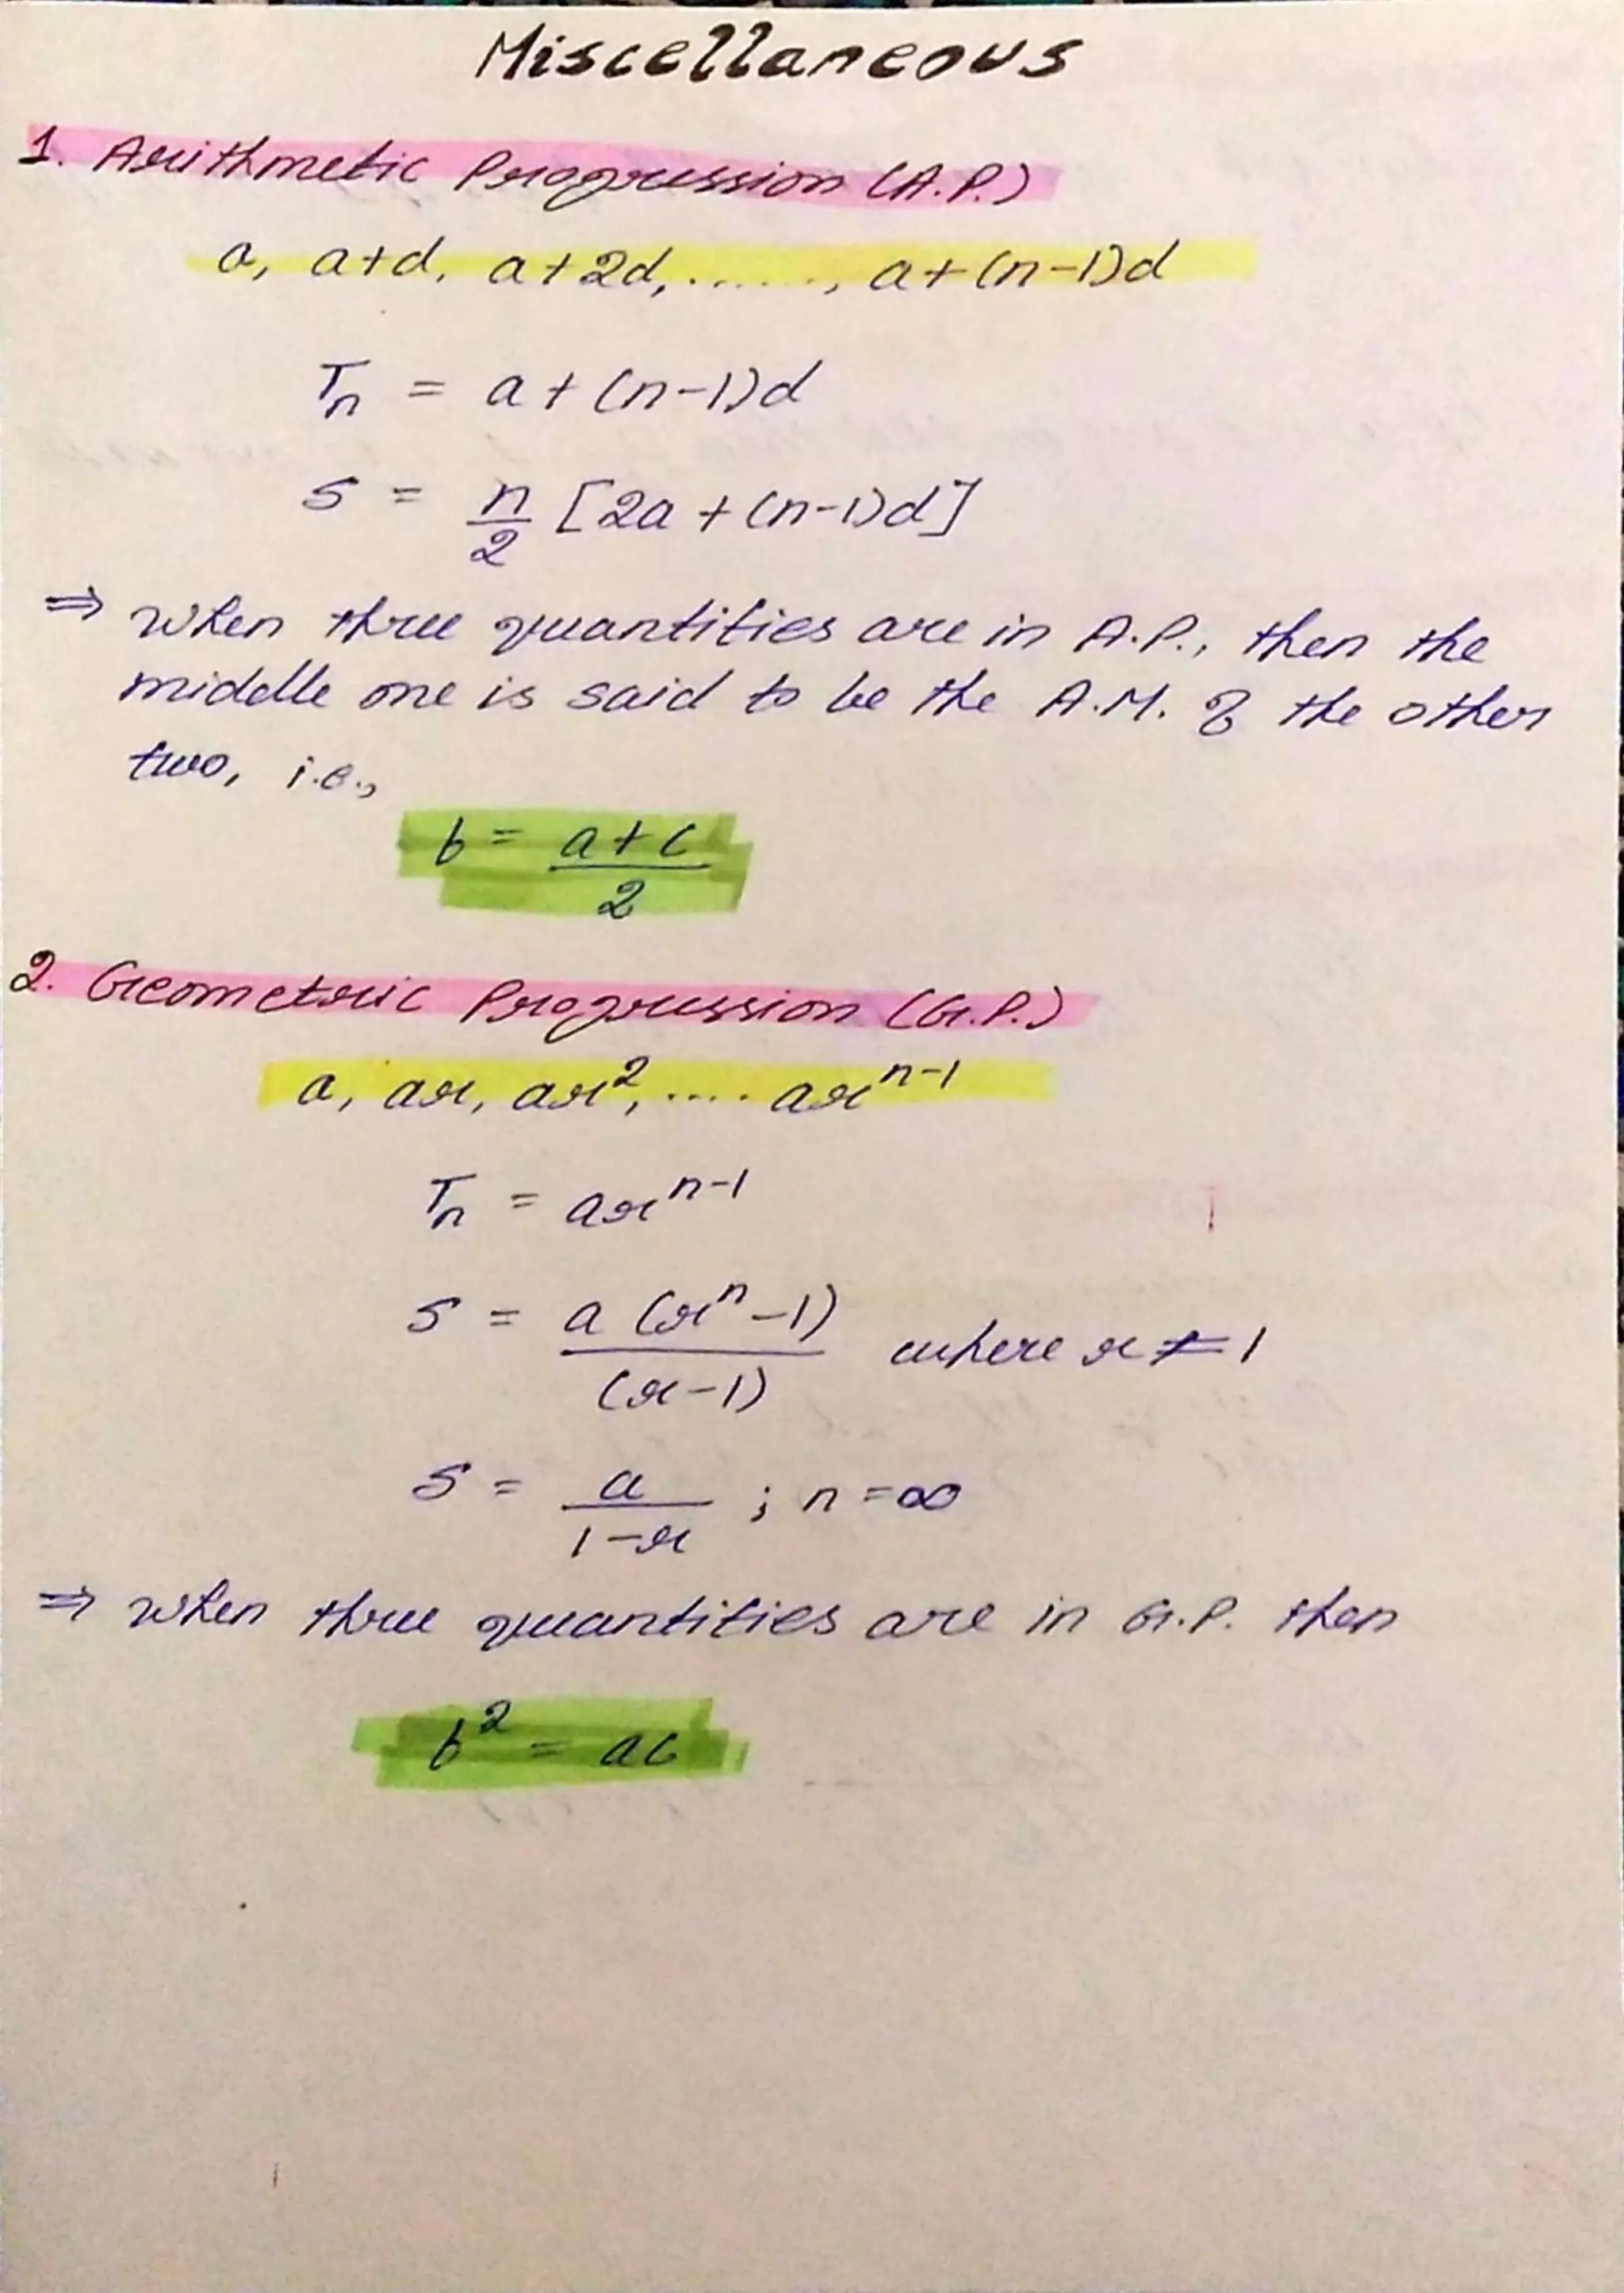 Miscellaneous
1. Arithmetic Progression (A.P.)
a, a+d, a+2d, ......, a+(n-1)d
Tn = a+(n-1)d
S = n/2 [2a+(n-1)d]
⇒ when three quantities are in A.P., then the
middle one is said to be the A.M. of the other
two, i.e.,
b = a+c/2
2. Geometric Progression (G.P.)
a, ar, ar², .... arⁿ⁻¹
Tn = arⁿ⁻¹
S = a (rⁿ-1)/(r-1) where r ≠ 1
S = a/1-r ; n = ∞
⇒ when three quantities are in G.P. then
b² = ac